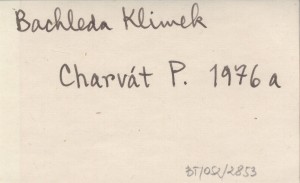 Bachleda Klimek
Charvát P. 1976a
BT/052/2853